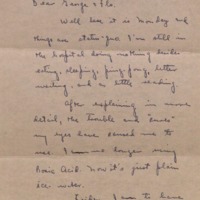 Dear George & Flo
Well here it is Monday and
things are status-quo. I'm still in
the hospital doing nothing besides
eating, sleeping, ping-pong, letter
writing, and a little reading.
After explaining in more
detail, the trouble and
my eyes have caused me to
use I am no longer using
Boric Acid. Now it's just plain
ice water.
I am to have